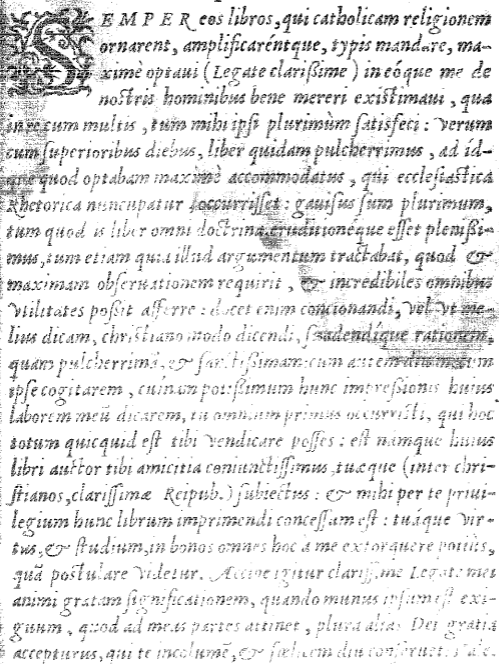 SEMPER eos libros, qui catholicam religionem
ornarent, amplificaréntque, typis mandare, ma-
ximè optaui (Legate clarißime) in eóque me de
nostris hominibus bene mereri existimaui, qua
in re cum multis, tum mihi ipsi plurimùm satisfeci: Verum
cum superioribus diebus, liber quidam pulcherrimus, ad id-
que quod optabam maximè accommodatus, qui ecclesiastica
Rhetorica nuncupatur occurrisset: gauisus sum plurimum,
tum quod is liber omni doctrina eruditionéque esset plenißi-
mus, tum etiam quia illud argumentum tractabat, quod &
maximam obseruationem requirit, & incredibiles omnibus
Vtilitates poßit afferre: docet enim concionandi, vel vt me-
lius dicam, christiano modo dicendi, suadendíque rationem,
quam pulcherrimā, & sanctißimam: cum autem diu
ipse cogitarem, cuinam potißimum hunc impreßionis huius
laborem meū dicarem, tu omnium primus occurristi, qui hoc
totum quicquid est tibi vendicare posses: est namque huius
libri auctor tibi amicitia coniunctissimus, tuæque (inter chri-
stianos, clarissimæ Reipub.) subiectus: & mihi per te priui-
legium hunc librum imprimendi concessam est: tuáque vir-
tus, & studium in bonos omnes hoc à me extorquere potius,
quā postulare videtur. Accipe igitur clarissime Legate mei
animi gratam significationem, quando munus ipsum est exi-
guum, quod ad meas partes attinet, plura alias Dei gratia
accepturus, qui te incolumē, &